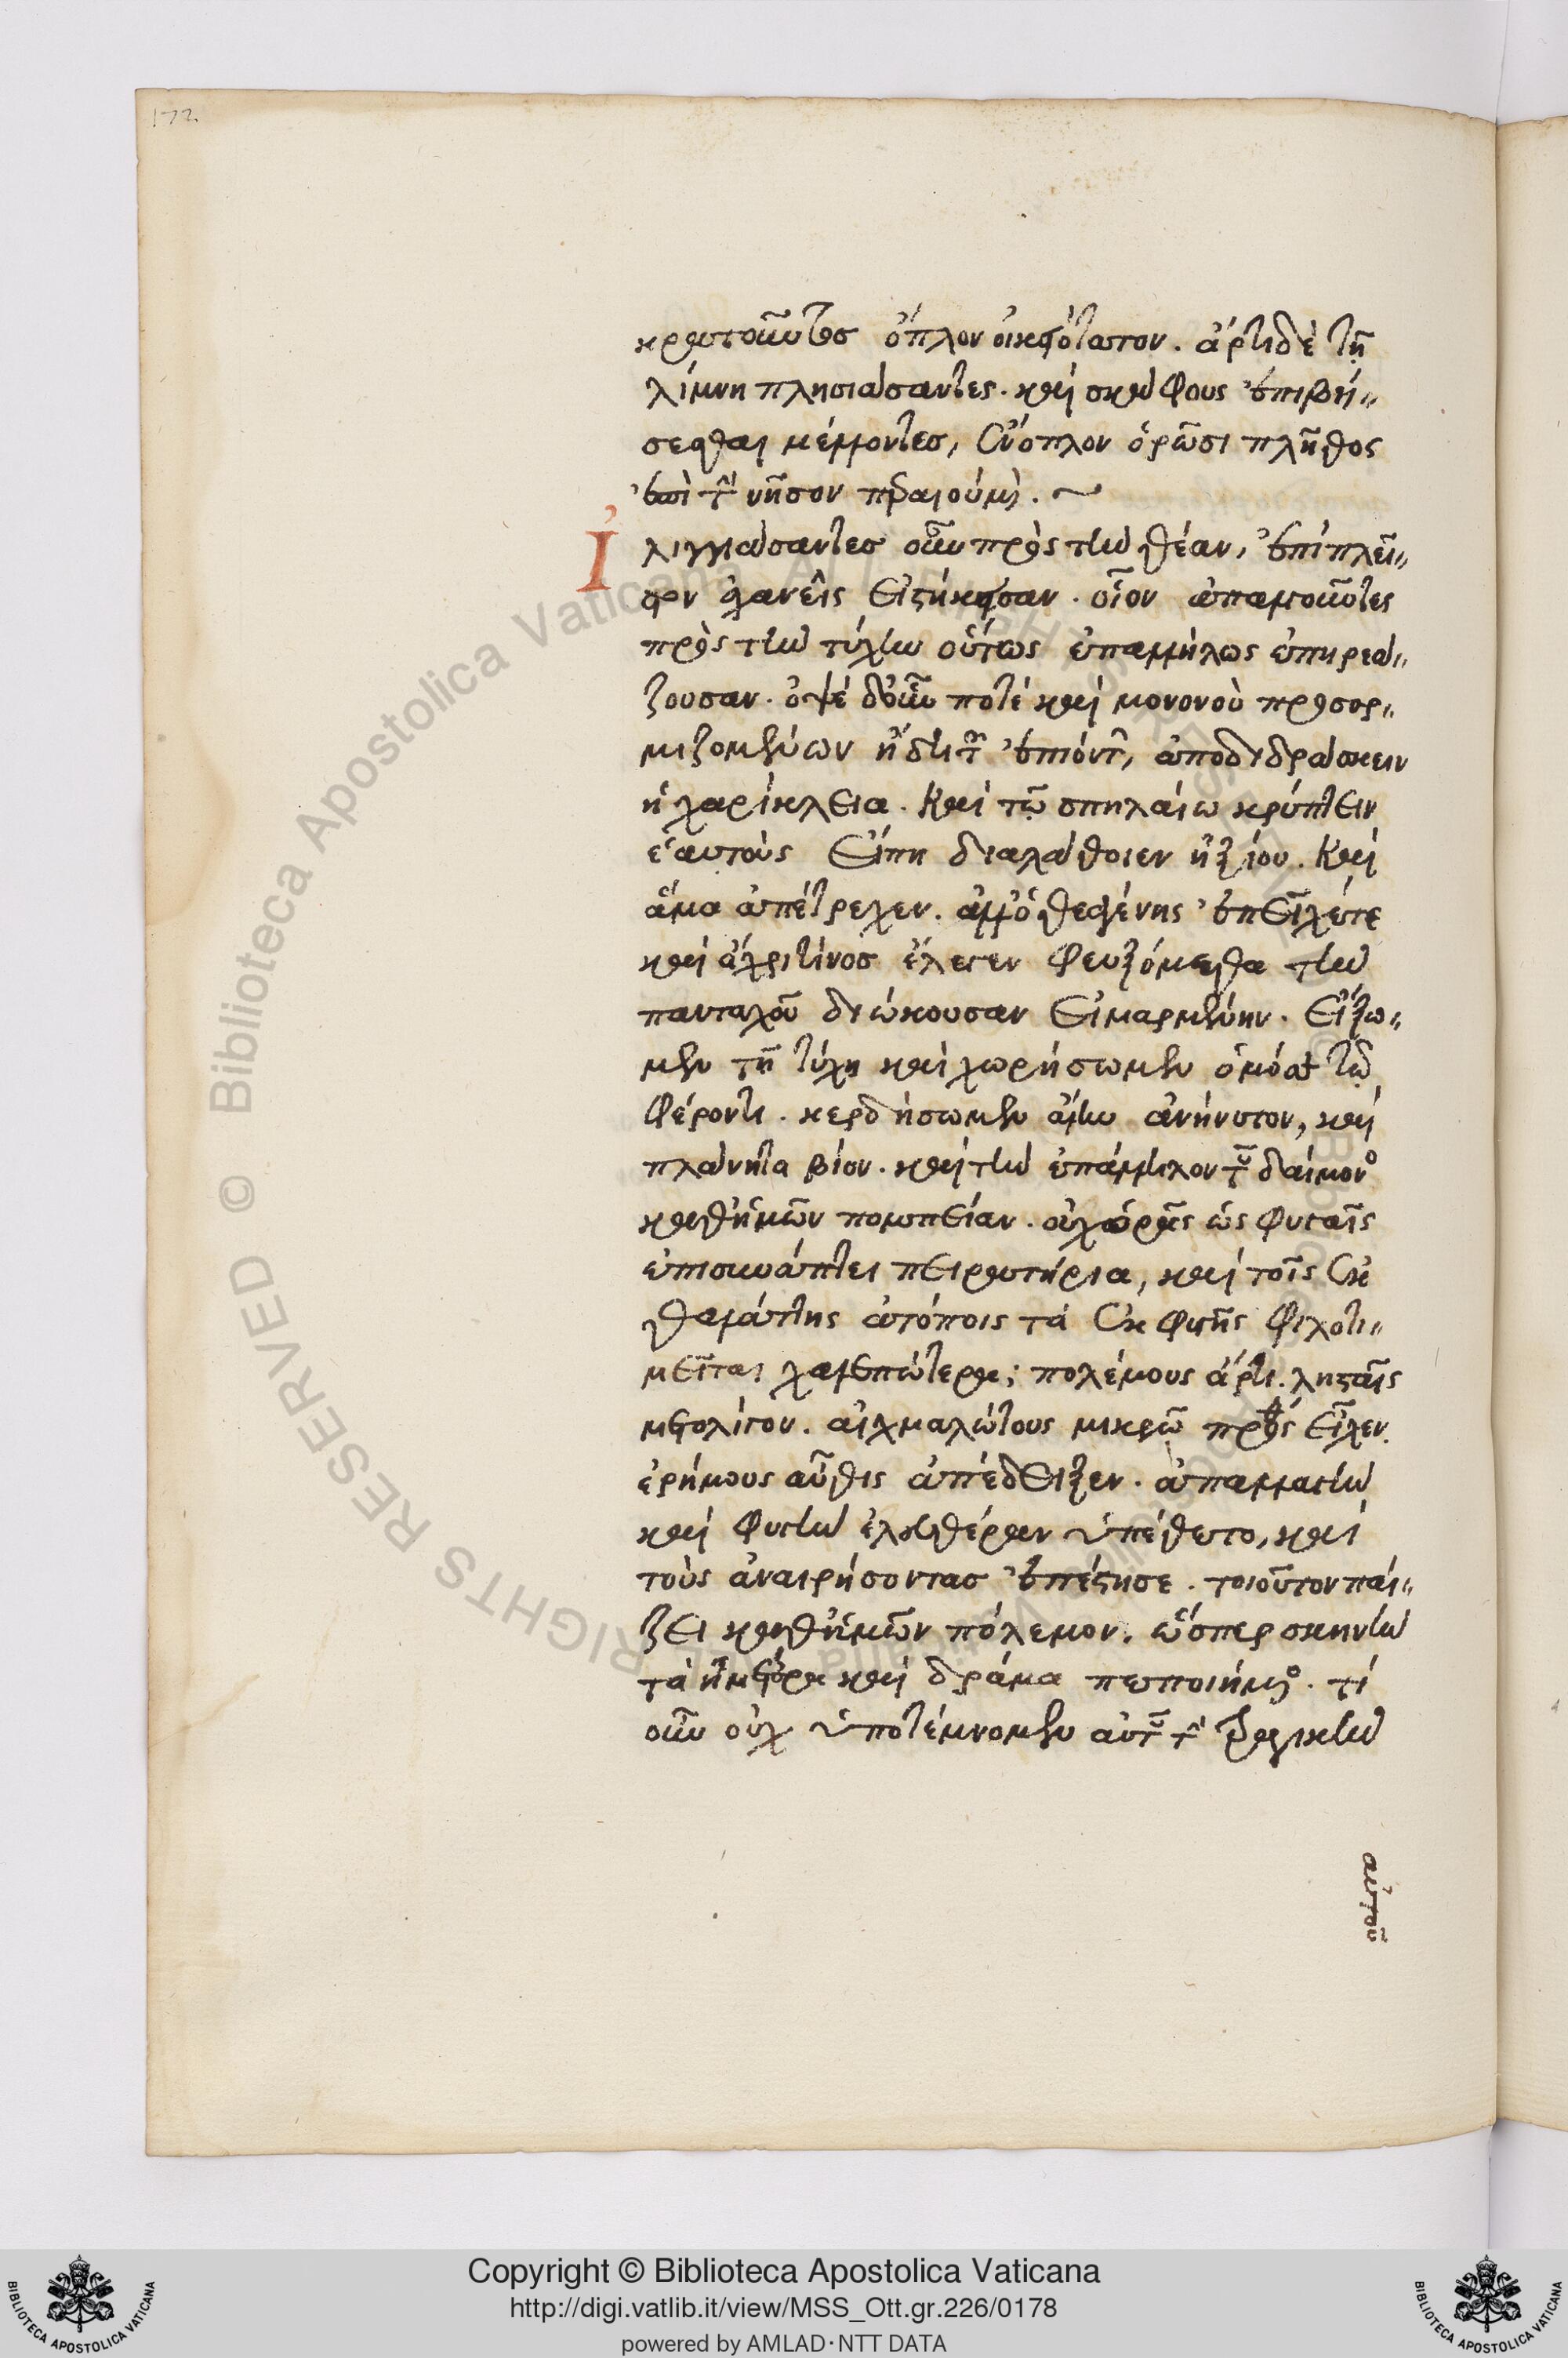 172
κρατοῦντες ὅπλον οἰκειότατον. ἄρτι δὲ τῇ
λίμνῃ πλησιάσαντες. καὶ σκάφους ἐπιβή-
σεσθαι μέλλοντες, ἔνοπλον ὁρῶσι πλῆθος
ἐπὶ τὴν νῆσον περαιούμενον.
Ἰλιγγιάσαντες οὖν πρὸς τὴν θέαν, ἐπὶ πλεῖ-
στον ἀχανεῖς εἱστήκεσαν. οἷον ἀπαλγοῦντες
πρὸς τὴν τύχην οὕτως ἐπαλλήλως ἐπηρεά-
ζουσαν. ὀψὲ δ' οὖν ποτὲ καὶ μονονοὺ προσορ-
μιζομένων ἤδη τῶν ἐπιόντων, ἀποδιδράσκειν
ἡ χαρίκλεια. καὶ τῷ σπηλαίῳ κρύπτειν
ἑαυτοὺς εἴπη διαλάθοιεν ἠξίου. καὶ
ἅμα ἀπέτρεχεν. ἀλλ' ὁ θεαγένης ἐπεῖχέ τε
καὶ ἄχρι τίνος ἔλεγεν φευξόμεθα τὴν
πανταχοῦ διώκουσαν εἱμαρμένην. εἴξω-
μεν τῇ τύχῃ καὶ χωρήσωμεν ὁμόσε τῷ
φέροντι. κερδήσωμεν ἄλην ἀνήνυτον, καὶ
πλάνητα βίον. καὶ τὴν ἐπάλληλον τοῦ δαίμονος
καθ' ἡμῶν πομπείαν. οὐχ ὁρᾶς ὡς φυγαῖς
ἐπισυνάπτει πειρατήρια, καὶ τοῖς ἐκ
θαλάττης ἀτόποις τὰ ἐκ γῆς φιλοτι-
μεῖται χαλεπώτερα; πολέμους ἄρτι. λῃσταῖς
μετολίγον. αἰχμαλώτους μικρῷ πρόσθεν εἶχεν.
ἐρήμους αὖθις ἀπέδειξεν. ἀπαλλαγὴν
καὶ φυγὴν ἐλευθέραν ὑπέθετο, καὶ
τοὺς ἀναιρήσοντας ἐπέστησε. τοιοῦτον παί-
ζει καθ' ἡμῶν πόλεμον. ὥσπερ σκηνὴν
τὰ ἡμέτερα καὶ δράμα πεποιημένος. τί
οὖν οὐχ ὑποτέμνομεν αὐτοῦ τὴν τραγικὴν
αὐτοῦ
© Biblioteca Apostolica Vaticana ALL RIGHTS RESERVED
Copyright © Biblioteca Apostolica Vaticana
http://digi.vatlib.it/view/MSS_Ott.gr.226/0178
powered by AMLAD·NTT DATA
BIBLIOTECA APOSTOLICA VATICANA
BIBLIOTECA APOSTOLICA VATICANA